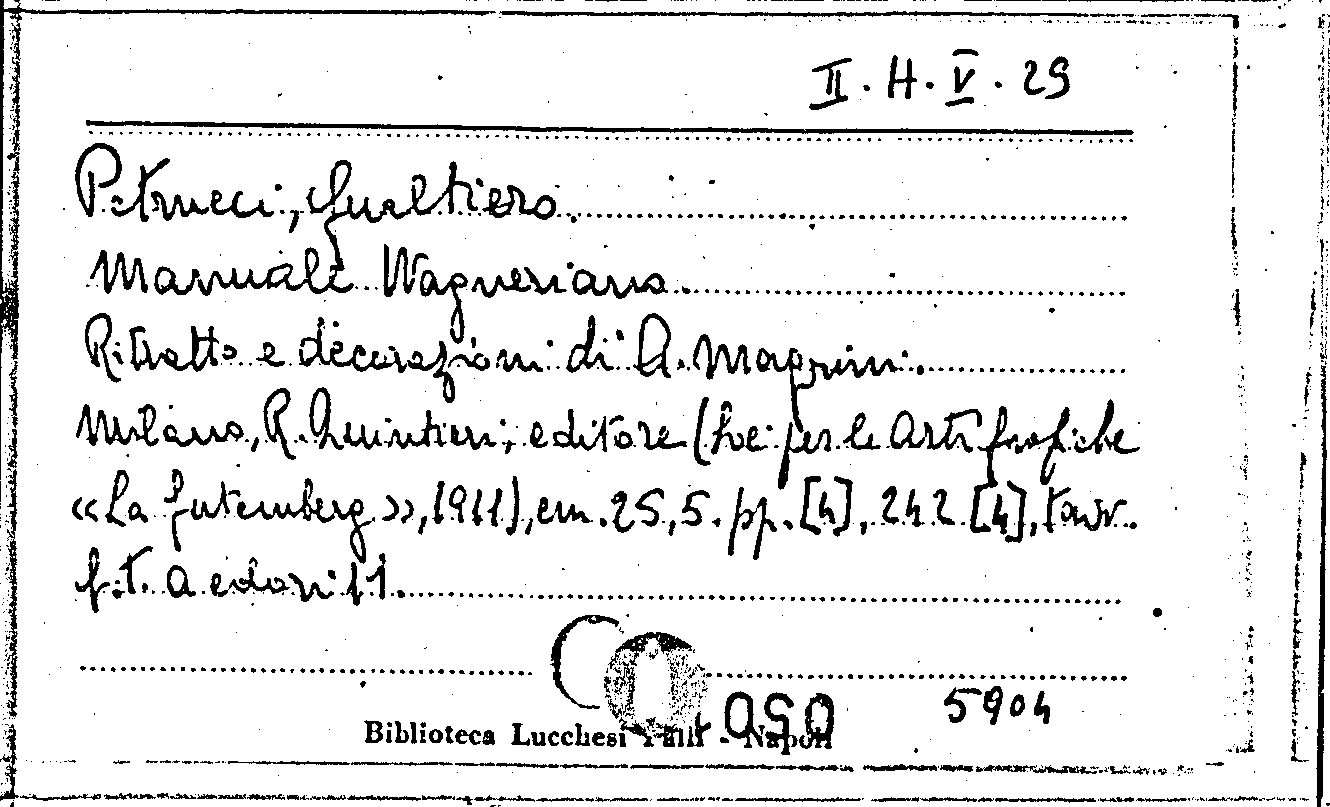 II. H. V. 29
Petrucci, Gualtiero.
Manuale Wagneriano.
Ritratto e decorazioni di A. Magrini.
Milano, R. Quintieri, editore (Soc. per le Arti Grafiche
«La Gutemberg», 1911), cm. 25,5. pp. [4], 242 [4], tavv.
f.t. a colori 11.
5904
Biblioteca Lucchesi Palli - Napoli